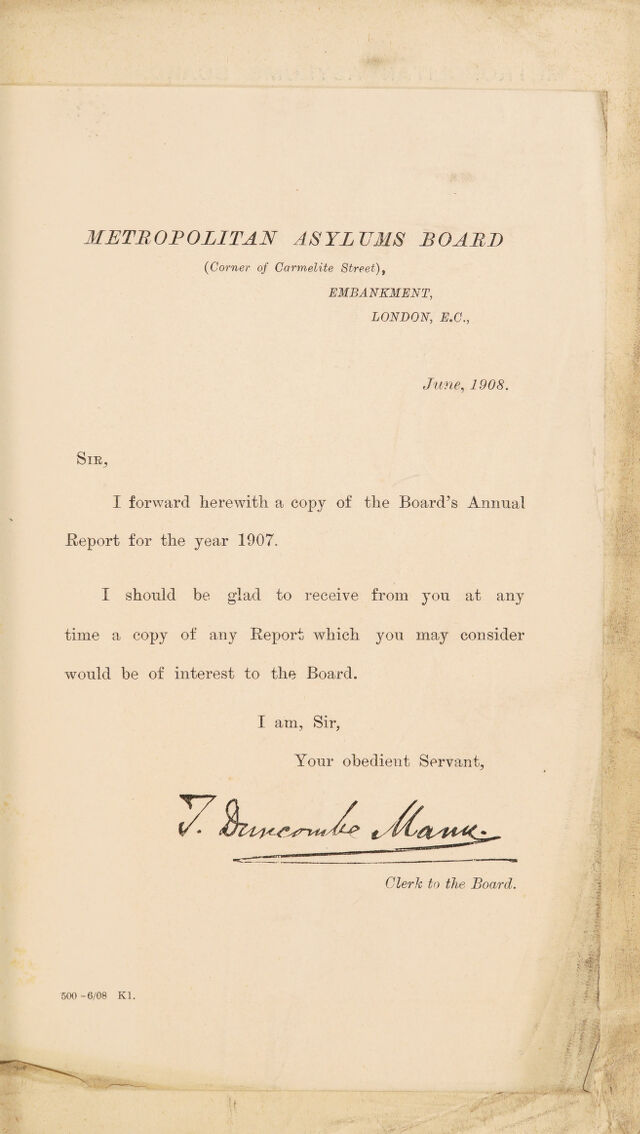 METROPOLITAN ASYLUMS BOARD
(Corner of Carmelite Street),
EMBANKMENT,
LONDON, E.C.,
June, 1908.
SIR,
I forward herewith a copy of the Board's Annual
Report for the year 1907.
I should be glad to receive from you at any
time a copy of any Report which you may consider
would be of interest to the Board.
I am, Sir,
Your obedient Servant,
T. Duncombe Mann.
Clerk to the Board.
500-6/08 K1.